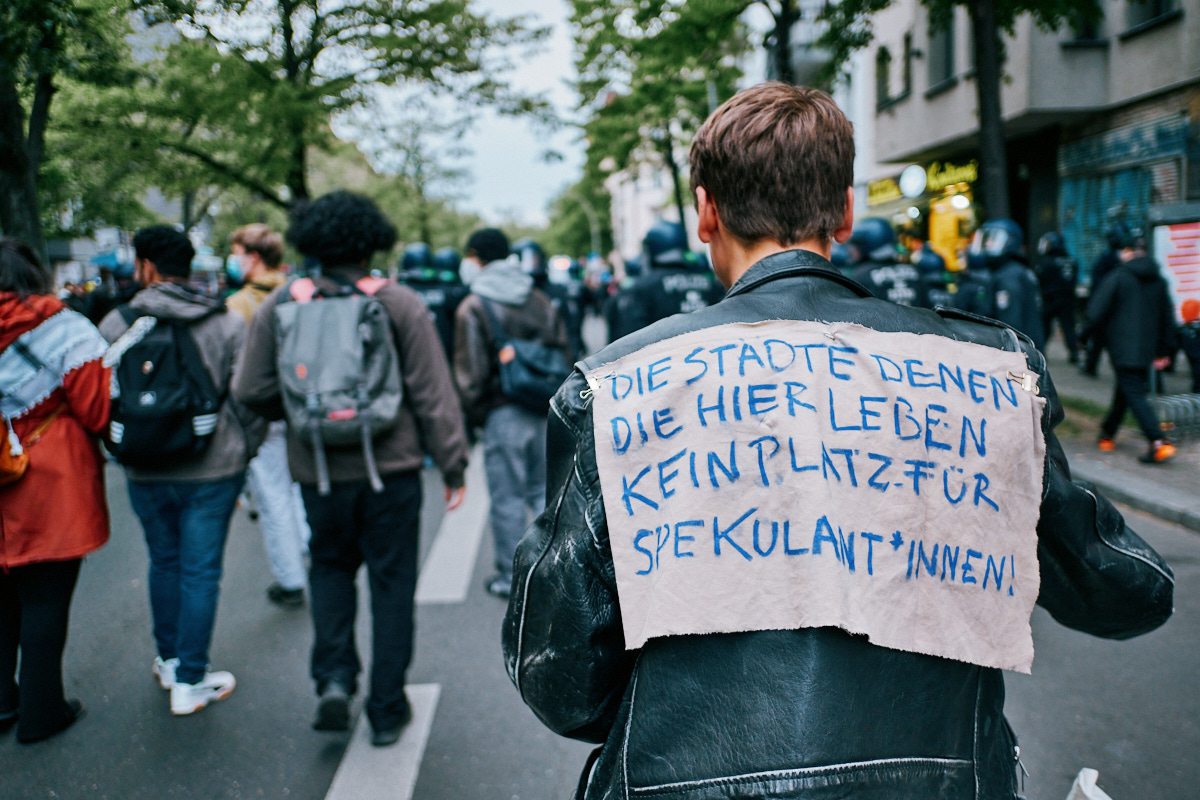 DIE STÄDTE DENEN
DIE HIER LEBEN
KEIN PLATZ FÜR
SPEKULANT*INNEN!
POLIZEI